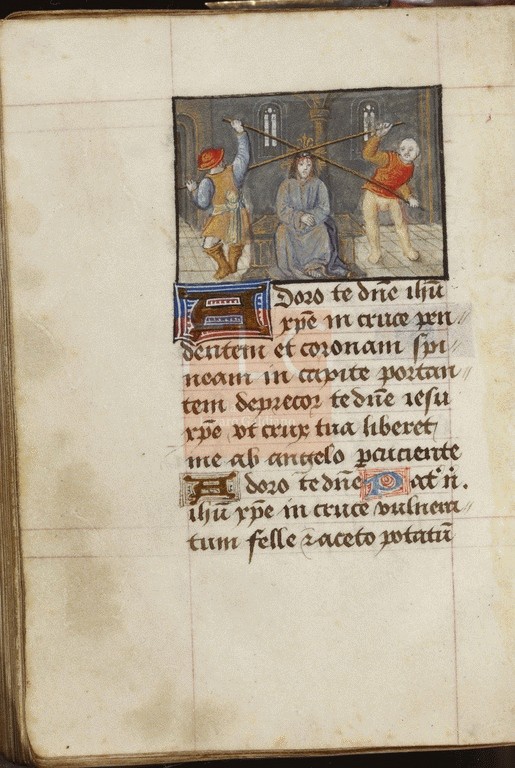 Adoro te dn̄e ihū
xp̄e in cruce pen
dentem et coronam spi
neam in capite portan
tem deprecor te dn̄e iesu
xp̄e vt crux tua liberet
me ab angelo ꝑcuciente
Adoro te dn̄e Pat' n̄.
ihū xp̄e in cruce vulnera
tum felle ⁊ aceto potatū